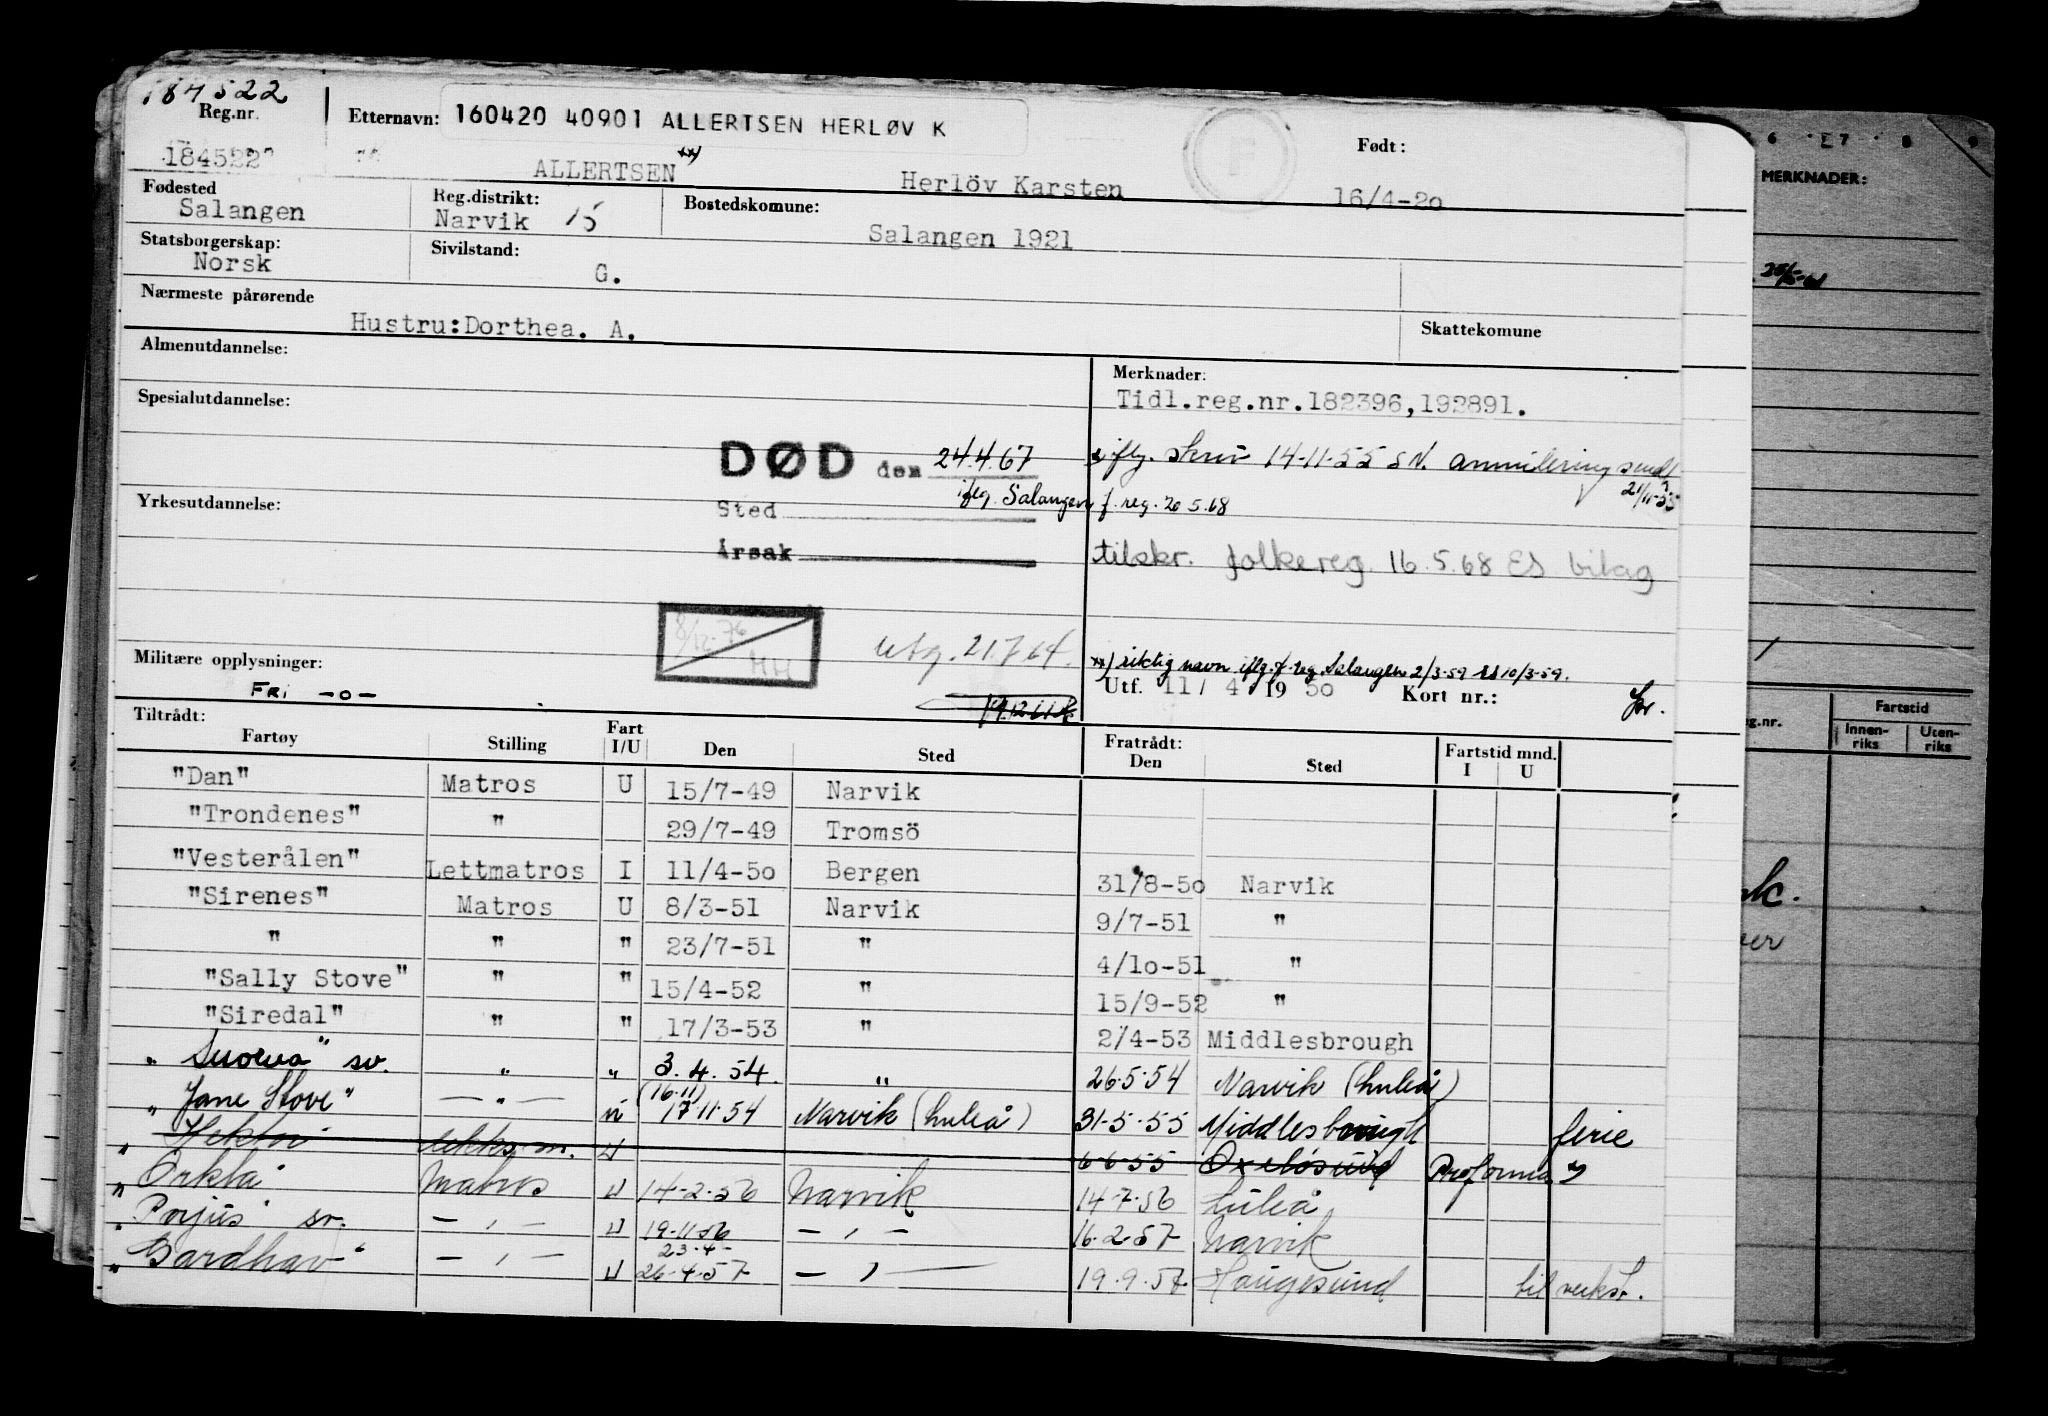 184522
Reg.nr.
Etternavn: 160420 40901 ALLERTSEN HERLØV K
F
Født:
184522
ALLERTSEN xx)
Herlöv Karsten
16/4-20
Fødested
Salangen
Reg.distrikt:
Narvik 15
Bostedskomune:
Salangen 1921
Statsborgerskap:
Norsk
Sivilstand:
G.
Nærmeste pårørende
Hustru:Dorthea. A.
Skattekomune
Almenutdannelse:
Merknader:
Tidl.reg.nr.182396,192891.
Spesialutdannelse:
DØD den 24.4.67
iflg. Salangen f. reg. 20.5.68
x iflg. skriv 14-11-55 SN. annulering sendt
21/11-55
Yrkesutdannelse:
Sted
Årsak
tilskr. folkereg. 16.5.68 ES bilag
8/12-76
HH
utg. 21.7.64.
Militære opplysninger:
FRI -0-
xx) riktig navn iflg. f. reg. Salangen 2/3-59 10/3-59.
Utf. 11/ 4 19 50 Kort nr.:
Tiltrådt:
Fratrådt:
Fartøy Stilling Fart I/U Den Sted Den Sted Fartstid mnd. I U
"Dan" Matros U 15/7-49 Narvik
"Trondenes" " 29/7-49 Tromsö
"Vesterålen" Lettmatros I 11/4-50 Bergen 31/8-50 Narvik
"Sirenes" Matros U 8/3-51 Narvik 9/7-51 "
" " " 23/7-51 " 4/10-51 "
"Sally Stove" " " 15/4-52 " 15/9-52 "
"Siredal" " " 17/3-53 " 2/4-53 Middlesbrough
"Suorva" sv. " " 3.4.54. " 26.5.54 Narvik (Luleå)
"Jane Stove" — " — (16.11) 17.11.54 Narvik (Luleå) 31-5-55 Middlesbrough ferie
"Hektor" U 6-6-55 Oxelösund Proforma x)
"Orkla" Matros U 14-2-56 Narvik 14-7-56 Luleå
"Porjus" sv. — " — U 19-11-56 — " — 16-2-57 Narvik
23-4-
"Gardhav" — " — U 26-4-57 — " — 19.9.57 Haugesund til verkst.
6 7 8 9
MERKNADER:
Fartstid
eg.nr.
Innen-
riks
Uten-
riks